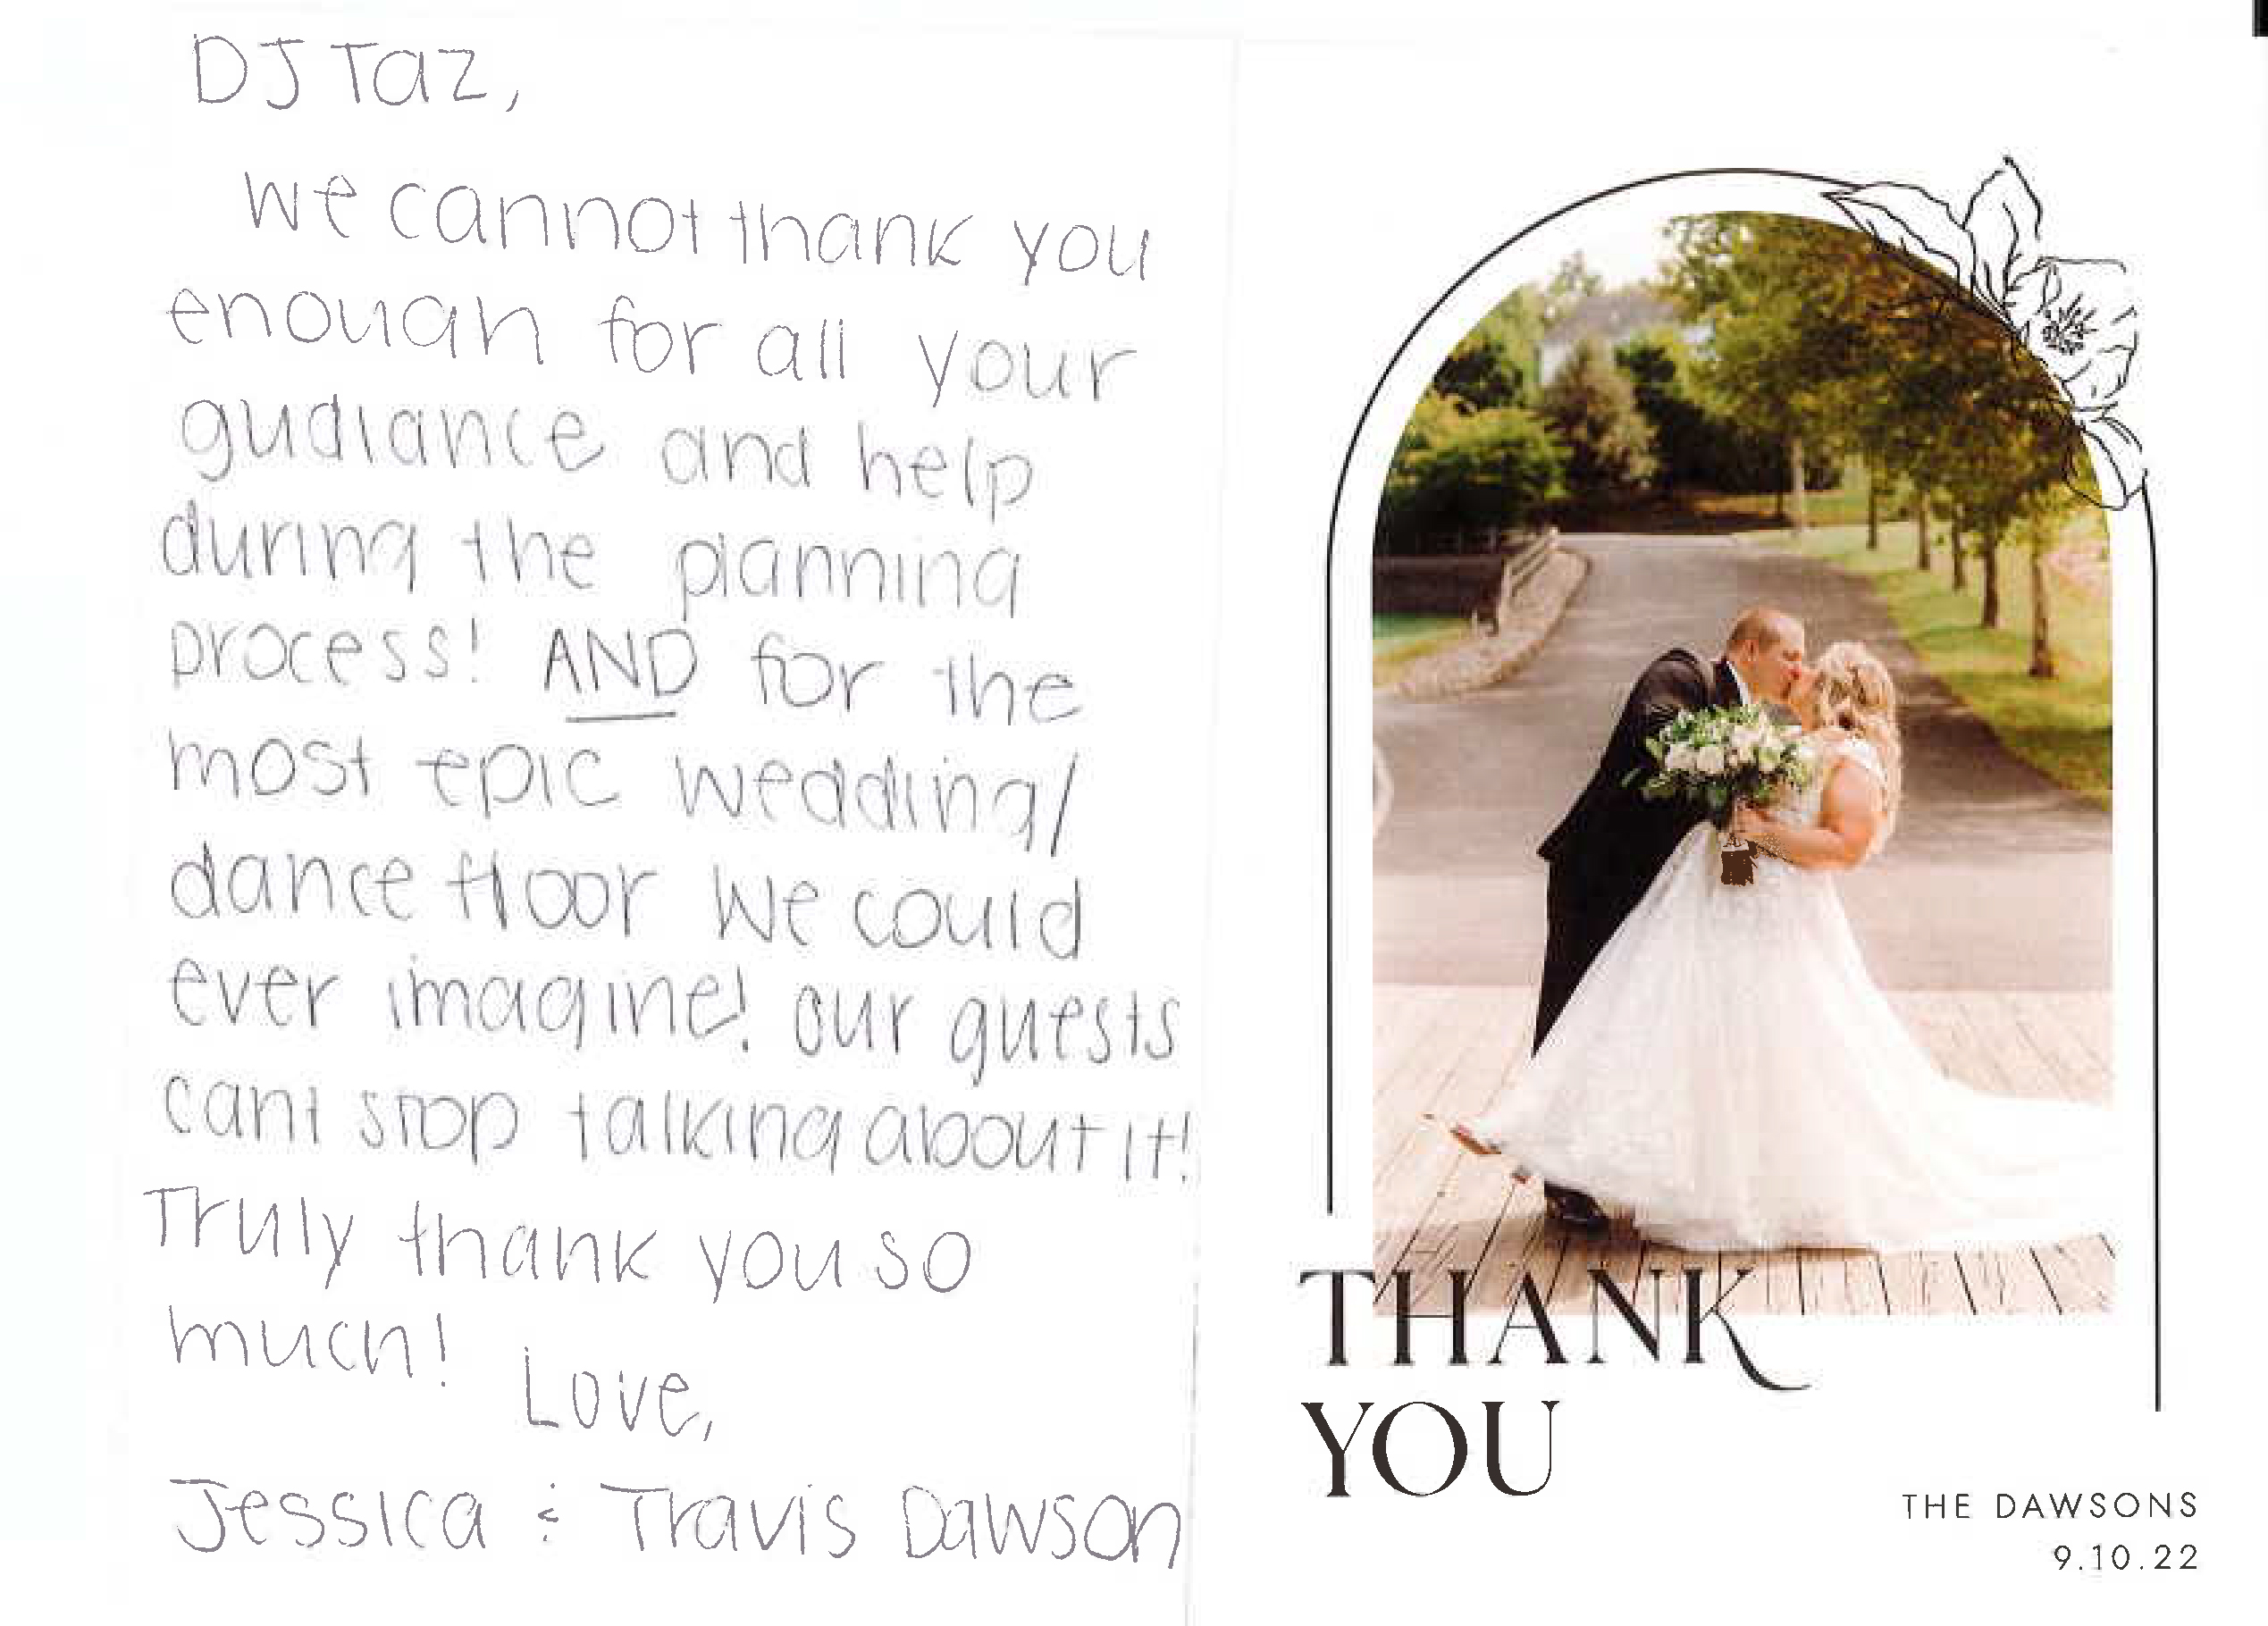 DJ Taz,
We cannot thank you
enough for all your
gudiance and help
during the planning
process! AND for the
most epic wedding/
dance floor we could
ever imagine! our guests
cant stop talking about it!
Truly thank you so
much! Love,
Jessica & Travis Dawson
THANK
YOU
THE DAWSONS
9.10.22